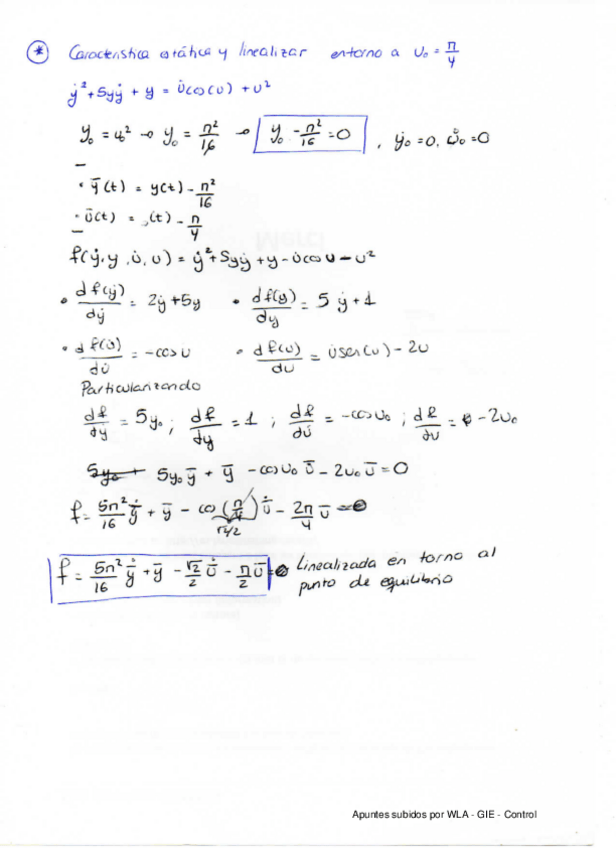 * Característica estática y linealizar entorno a U₀ = π/4
ẏ² + 5yẏ + y = u̇cos(u) + u²
y₀ = u² → y₀ = π²/16 → y₀ - π²/16 = 0 , ẏ₀ = 0, u̇₀ = 0
· ȳ(t) = y(t) - π²/16
· ū(t) = (t) - π/4
f(ẏ, y, u̇, u) = ẏ² + 5yẏ + y - u̇cos u - u²
· df(ẏ)/dẏ = 2ẏ + 5y · df(y)/dy = 5ẏ + 1
· df(u̇)/du̇ = -cos u · df(u)/du = u̇sen(u) - 2u
Particularizando
df/dy = 5y₀ ; df/dy = 1 ; df/du̇ = -cos u₀ ; df/du = - 2u₀
5y₀ ȳ + ȳ - cos u₀ ū - 2u₀ ū = 0
f = 5π²/16 ȳ̇ + ȳ - cos(π/4) ū̇ - 2π/4 ū = 0
√2/2
f = 5π²/16 ȳ̇ + ȳ - √2/2 ū̇ - π/2 ū = 0 Linealizada en torno al
punto de equilibrio
Apuntes subidos por WLA - GIE - Control